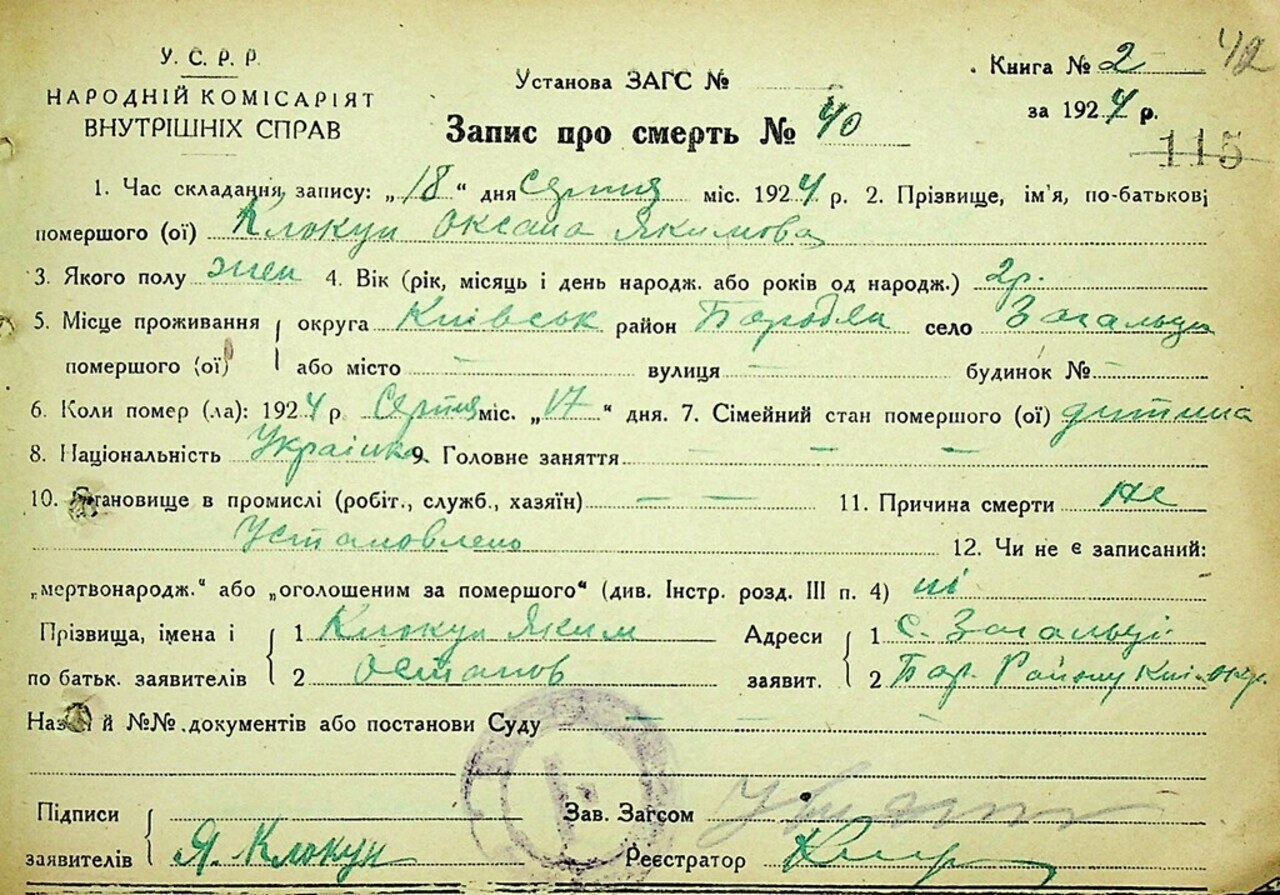 У. С. Р. Р.
НАРОДНІЙ КОМІСАРІЯТ
ВНУТРІШНІХ СПРАВ
Установа ЗАГС №
Запис про смерть № 40
Книга № 2
42
за 1924 р.
115
1. Час складання запису: „18“ дня Серпня міс. 1924 р. 2. Прізвище, ім'я, по-батькові
помершого (ої) Клокун Оксана Якимова
3. Якого полу жен 4. Вік (рік, місяць і день народж. або років од народж.) 2р.
5. Місце проживання округа Київськ район Бородян село Загальці
помершого (ої) або місто — вулиця — будинок № —
6. Коли помер (ла): 1924 р. Серпня міс. „17“ дня. 7. Сімейний стан помершого (ої) дитина
8. Національність Українка 9. Головне заняття — — —
10. Становище в промислі (робіт., служб., хазяїн) — — 11. Причина смерти не
Установлено 12. Чи не є записаний:
„мертвонародж.“ або „оголошеним за помершого“ (див. Інстр. розд. III п. 4) ні
Прізвища, імена і 1 Клокун Яким Адреси 1 с. Загальці
по батьк. заявителів 2 Остапов заявит. 2 Бор. Району Киї. окр.
Назви й №№ документів або постанови Суду — — —
Підписи Зав. Загсом
заявителів Я. Клокун Реєстратор